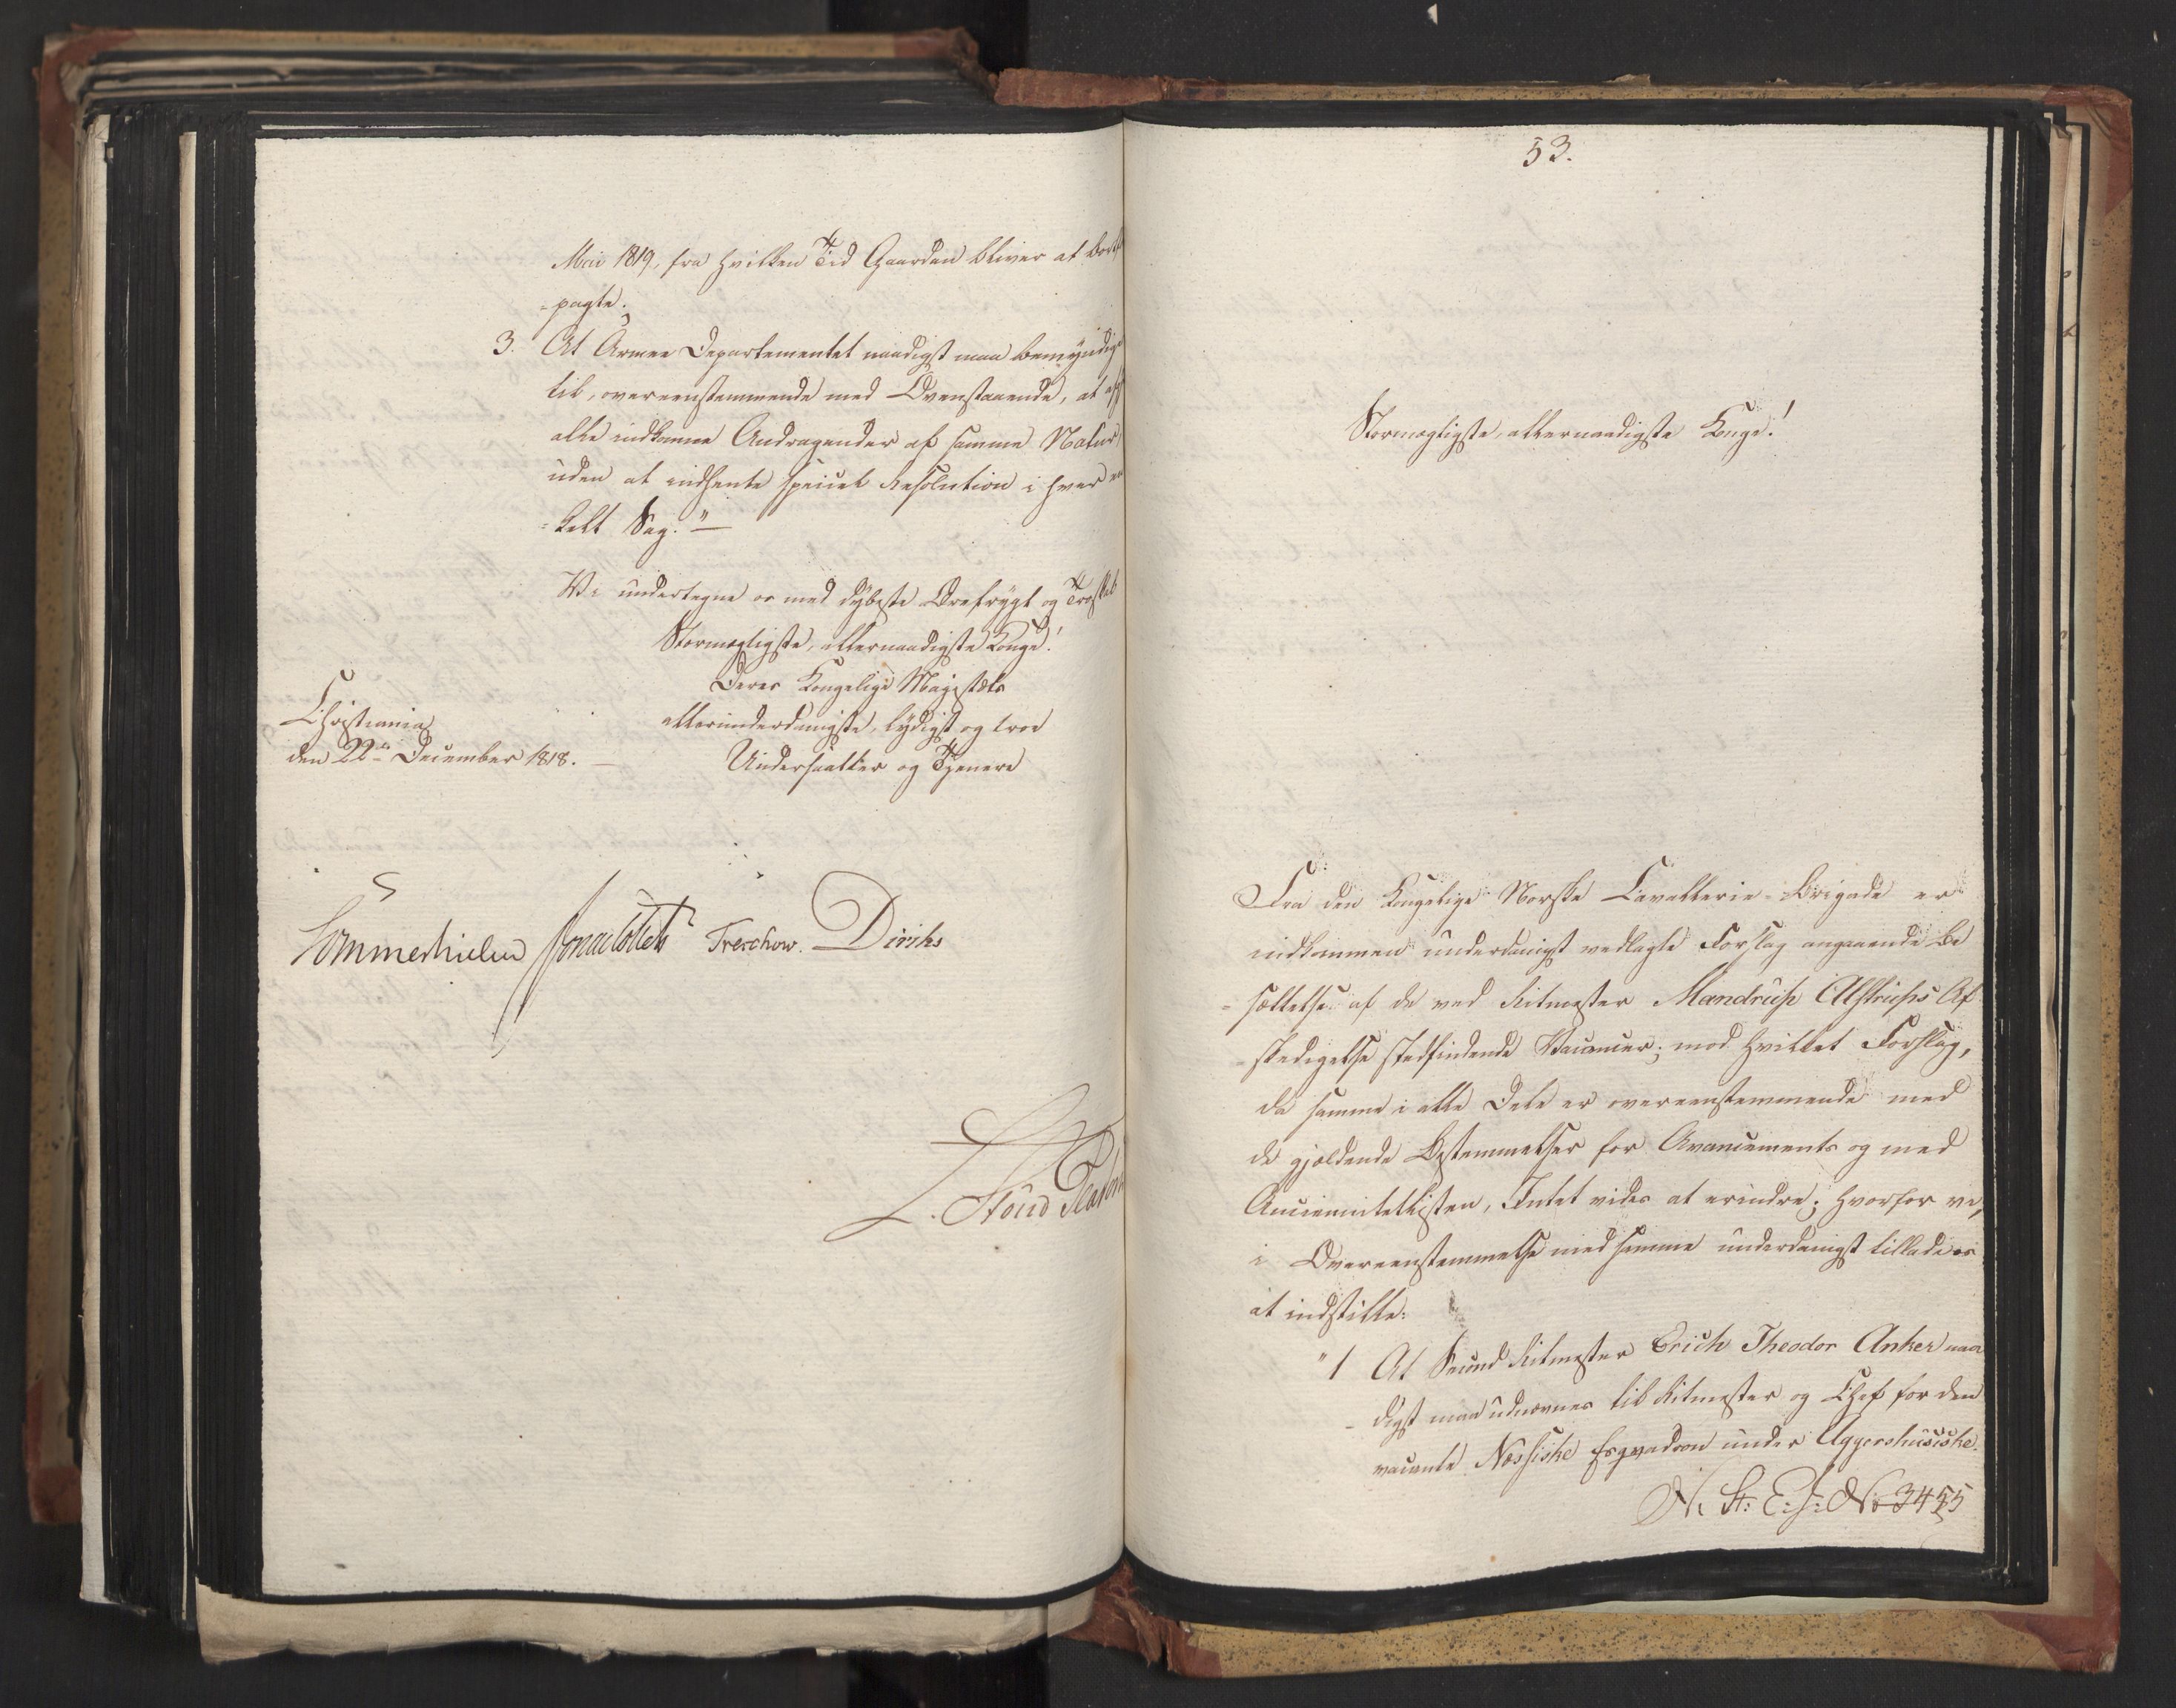 Mai 1819, fra hvilken Tid Gaarden bliver at bort-
-pagte.
3. At Armee Departementet naadigst maa bemyndiges
til, overeenstemmende med Ovenstaaende, at
alle indkomne Andragender af samme Natur,
uden at indhente speciel Resolution i hver en-
-kelt Sag."
Vi undertegne os med dybeste Ærefrygt og Troskab
Stormægtigste, allernaadigste Konge!
Deres Kongelige Majestæts
allerunderdanigste, lydigst og troe
Undersaatter og Tjenere
Christiania
den 22de December 1818.
Sommerhielm Jonas Collett Treschow. Diriks
53.
Stormægtigste, allernaadigste Konge!
Fra den Kongelige Norske Cavallerie-Brigade er
indkommen underdanigst vedlagte Forslag angaaende Be
-sættelse af de ved Ritmester Mandrup Astrups Af
-skedigelse stedfindende Vacancer; mod hvilket Forslag,
da samme i alle Dele er overeenstemmende med
de gjældende Bestemmelser for Avancements og med
Anciennitetlisten, Intet vides at erindre; hvorfor vi,
i Overeenstemmelse med samme underdanigst tillade os
at indstille:
"1 At Second Ritmester Erich Theodor Anker naa
-digst maa udnævnes til Ritmester og Chef for den
vacante Næssiske Esqvadron under Aggershusiske
N. St: E. J: No 3455